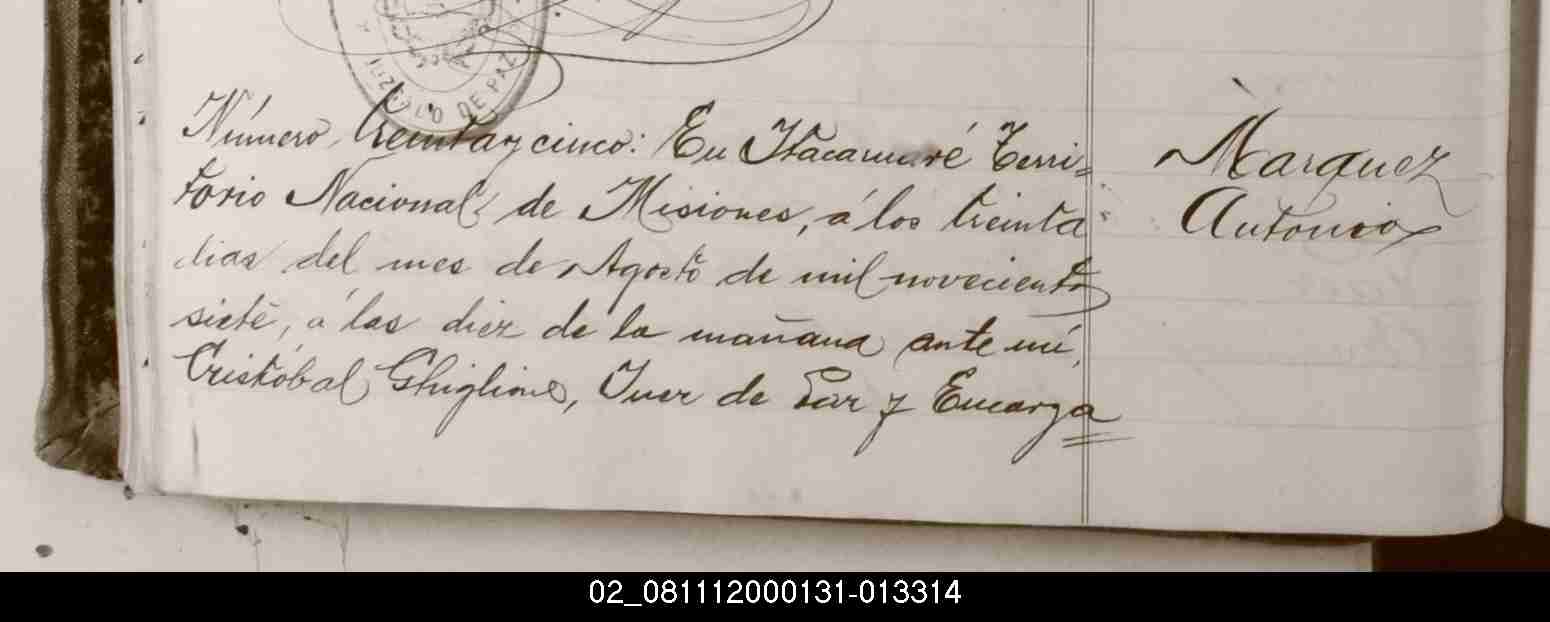 JUZGADO DE PAZ
Número treinta y cinco: En Itacaruaré Terri-
torio Nacional de Misiones, á los treinta
dias del mes de Agosto de mil novecientos
siete, á las diez de la mañana ante mí,
Cristóbal Ghiglione, Juez de Paz y Encarga=
Marquez
Antonio
02_081112000131-013314